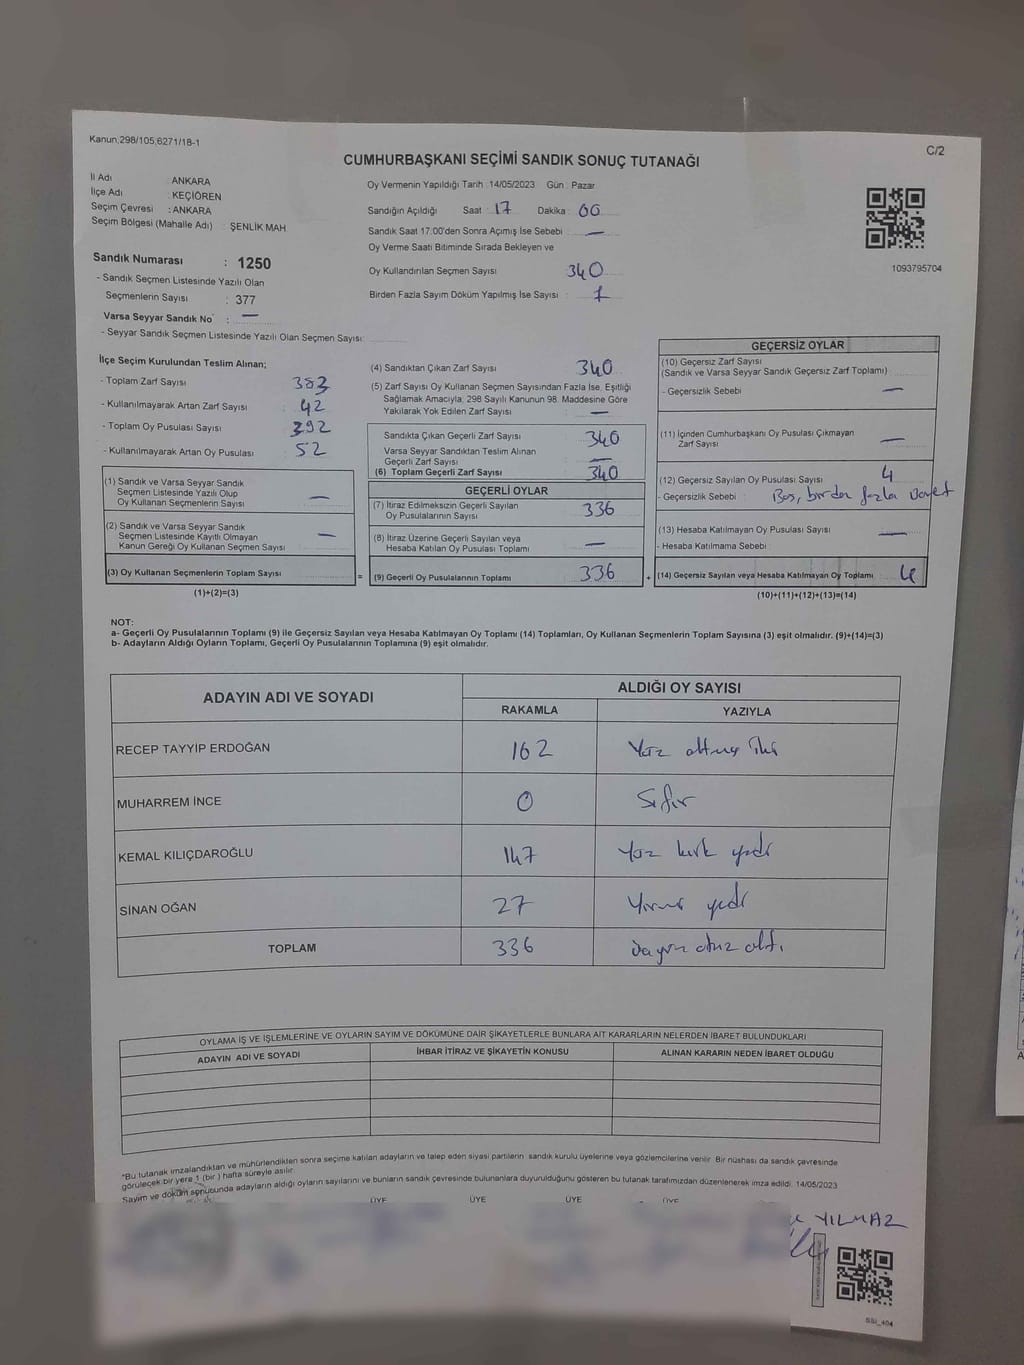 Kanun,298/105,6271/18-1
C/2
CUMHURBAŞKANI SEÇİMİ SANDIK SONUÇ TUTANAĞI
İl Adı : ANKARA
İlçe Adı : KEÇİÖREN
Seçim Çevresi : ANKARA
Seçim Bölgesi (Mahalle Adı) : ŞENLİK MAH
Oy Vermenin Yapıldığı Tarih :14/05/2023 Gün : Pazar
Sandığın Açıldığı Saat : 17 Dakika : 00
Sandık Saat 17:00'den Sonra Açımış İse Sebebi : —
Oy Verme Saati Bitiminde Sırada Bekleyen ve
Oy Kullandırılan Seçmen Sayısı 340
Birden Fazla Sayım Döküm Yapılmış İse Sayısı : 1
1093795704
Sandık Numarası : 1250
- Sandık Seçmen Listesinde Yazılı Olan
Seçmenlerin Sayısı : 377
Varsa Seyyar Sandık No : —
- Seyyar Sandık Seçmen Listesinde Yazılı Olan Seçmen Sayısı:
İlçe Seçim Kurulundan Teslim Alınan;
- Toplam Zarf Sayısı 383
- Kullanılmayarak Artan Zarf Sayısı : 42
- Toplam Oy Pusulası Sayısı 392
- Kullanılmayarak Artan Oy Pusulası 52
(1) Sandık ve Varsa Seyyar Sandık
Seçmen Listesinde Yazılı Olup
Oy Kullanan Seçmenlerin Sayısı —
(2) Sandık ve Varsa Seyyar Sandık
Seçmen Listesinde Kayıtlı Olmayan
Kanun Gereği Oy Kullanan Seçmen Sayısı —
(3) Oy Kullanan Seçmenlerin Toplam Sayısı =
(1)+(2)=(3)
(4) Sandıktan Çıkan Zarf Sayısı 340
(5) Zarf Sayısı Oy Kullanan Seçmen Sayısından Fazla İse, Eşitliği
Sağlamak Amacıyla; 298 Sayılı Kanunun 98. Maddesine Göre
Yakılarak Yok Edilen Zarf Sayısı : —
Sandıkta Çıkan Geçerli Zarf Sayısı 340
Varsa Seyyar Sandıktan Teslim Alınan
Geçerli Zarf Sayısı —
(6) Toplam Geçerli Zarf Sayısı 340
GEÇERLİ OYLAR
(7) İtiraz Edilmeksizin Geçerli Sayılan
Oy Pusulalarının Sayısı 336
(8) İtiraz Üzerine Geçerli Sayılan veya
Hesaba Katılan Oy Pusulası Toplamı —
(9) Geçerli Oy Pusulalarının Toplamı 336 +
GEÇERSİZ OYLAR
(10) Geçersiz Zarf Sayısı
(Sandık ve Varsa Seyyar Sandık Geçersiz Zarf Toplamı)
- Geçersizlik Sebebi : —
(11) İçinden Cumhurbaşkanı Oy Pusulası Çıkmayan
Zarf Sayısı —
(12) Geçersiz Sayılan Oy Pusulası Sayısı 4
- Geçersizlik Sebebi : Boş, birden fazla
(13) Hesaba Katılmayan Oy Pusulası Sayısı —
- Hesaba Katılmama Sebebi :
(14) Geçersiz Sayılan veya Hesaba Katılmayan Oy Toplamı 4
(10)+(11)+(12)+(13)=(14)
NOT:
a- Geçerli Oy Pusulalarının Toplamı (9) ile Geçersiz Sayılan veya Hesaba Katılmayan Oy Toplamı (14) Toplamları, Oy Kullanan Seçmenlerin Toplam Sayısına (3) eşit olmalıdır. (9)+(14)=(3)
b- Adayların Aldığı Oyların Toplamı, Geçerli Oy Pusulalarının Toplamına (9) eşit olmalıdır.
ADAYIN ADI VE SOYADI
ALDIĞI OY SAYISI
RAKAMLA YAZIYLA
RECEP TAYYİP ERDOĞAN 162 Yüz altmış iki
MUHARREM İNCE 0 Sıfır
KEMAL KILIÇDAROĞLU 147 Yüz kırk yedi
SİNAN OĞAN 27 Yirmi yedi
TOPLAM 336 otuz altı
OYLAMA İŞ VE İŞLEMLERİNE VE OYLARIN SAYIM VE DÖKÜMÜNE DAİR ŞİKAYETLERLE BUNLARA AİT KARARLARIN NELERDEN İBARET BULUNDUKLARI
ADAYIN ADI VE SOYADI İHBAR İTİRAZ VE ŞİKAYETİN KONUSU ALINAN KARARIN NEDEN İBARET OLDUĞU
*Bu tutanak imzalandıktan ve mühürlendikten sonra seçime katılan adayların ve talep eden siyasi partilerin sandık kurulu üyelerine veya gözlemcilerine verilir. Bir nüshası da sandık çevresinde
görülecek bir yere 1 (bir ) hafta süreyle asılır.
Sayım ve döküm sonucunda adayların aldığı oyların sayılarını ve bunların sandık çevresinde bulunanlara duyurulduğunu gösteren bu tutanak tarafımızdan düzenlenerek imza edildi. 14/05/2023
ÜYE ÜYE ÜYE ÜYE
YILMAZ
SSI_404